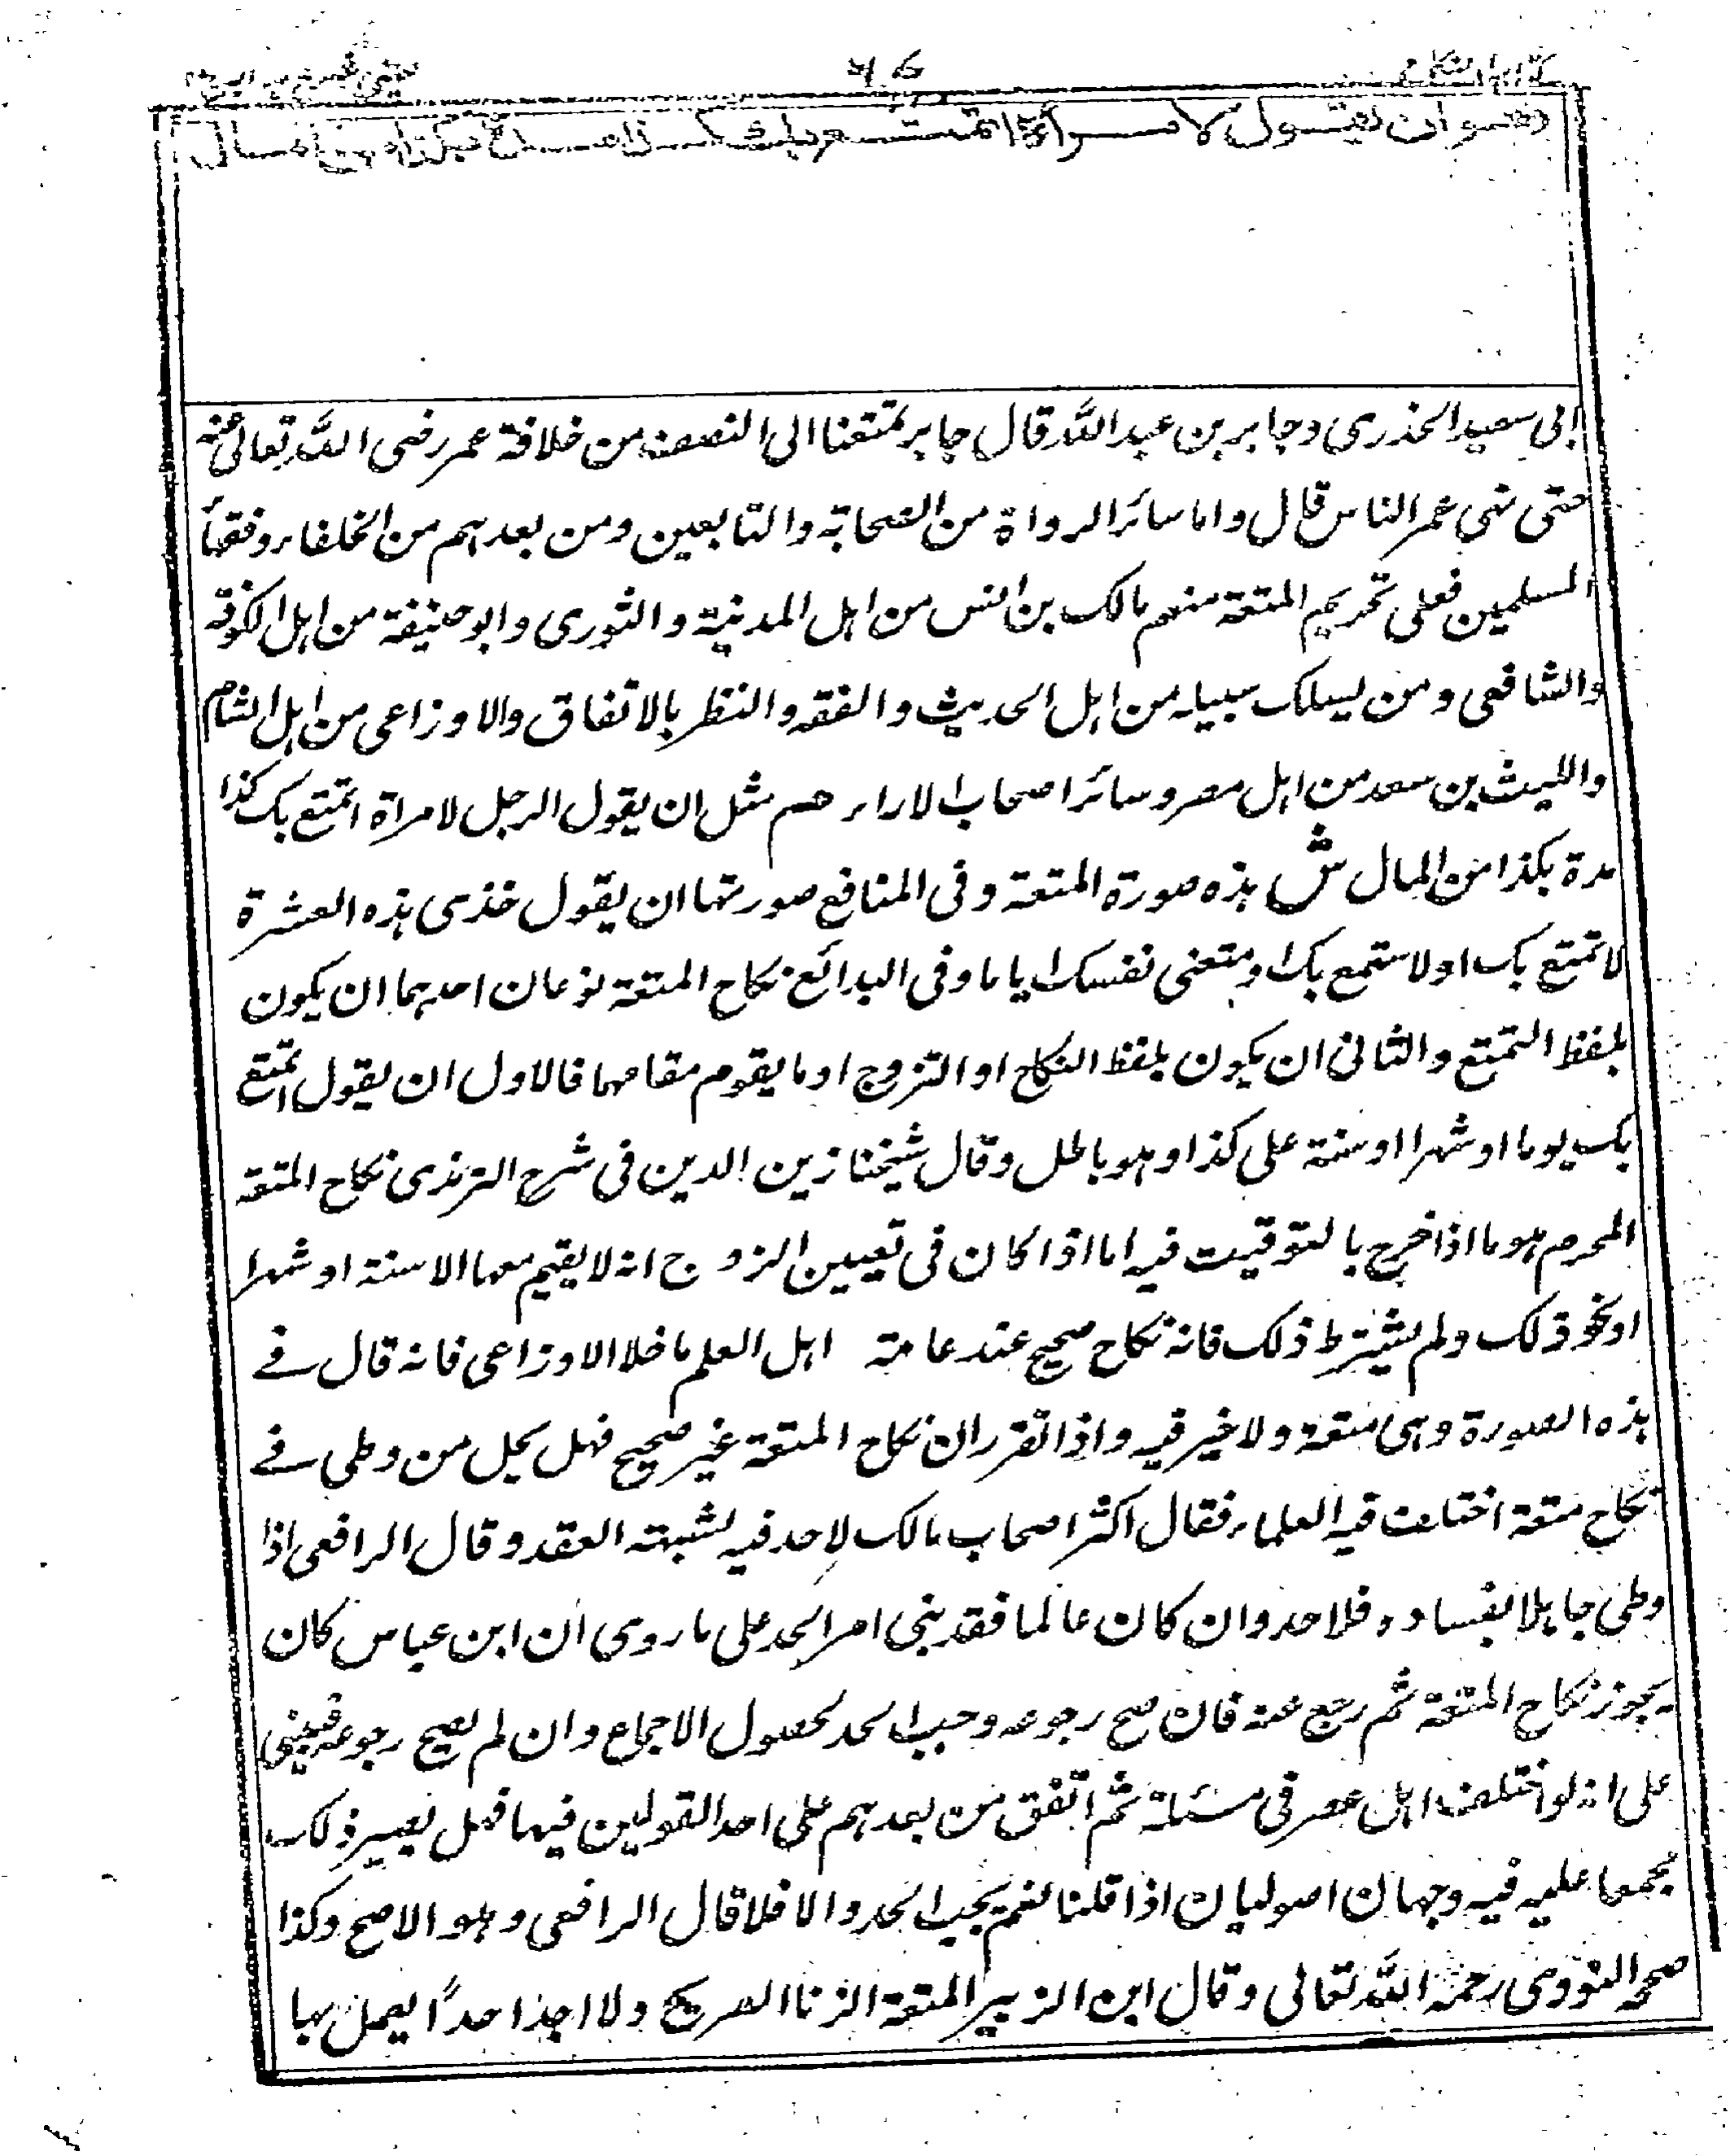 كتاب النكاح
٧٦
وهو ان يقول لامرأة اتمتع بك كذا مدة بكذا من المال
ابی سعید الخدری وجابر بن عبد اللہ قال جابر تمتعنا الی النصف من خلافة عمر رضی اللہ تعالی عنہ
حتی نہی عمر الناس قال واما سائر الرواة من الصحابة والتابعین ومن بعدہم من الخلفاء وفقہاء
المسلمین فعلی تحریم المتعة منہم مالک بن انس من اہل المدینة والثوری وابو حنیفة من اہل الکوفة
والشافعی ومن یسلک سبیلہ من اہل الحدیث والفقہ والنظر بالاتفاق والاوزاعی من اہل الشام
واللیث بن سعد من اہل مصر وسائر اصحاب الاراء م مثل ان یقول الرجل لامراة اتمتع بک کذا
مدة بکذا من المال ش ہذہ صورة المتعة وفی المنافع صورتہا ان یقول خذی ہذہ العشرة
لاتمتع بک او لاستمع بک او متعنی نفسک ایاما وفی البدائع نکاح المتعة نوعان احدہما ان یکون
بلفظ التمتع والثانی ان یکون بلفظ النکاح او التزوج او ما یقوم مقامہما فالاول ان یقول اتمتع
بک یوما او شہرا او سنة علی کذا وہو باطل وقال شیخنا زین الدین فی شرح الترمذی نکاح المتعة
المحرم ہو ما اذا خرج بالتوقیت فیہ اما اذا کان فی تعیین الزوج انہ لا یقیم معہا الا سنة او شہرا
او نحو ذلک ولم یشترط ذلک فانہ نکاح صحیح عند عامة اہل العلم ما خلا الاوزاعی فانہ قال فے
ہذہ الصورة وہی متعة ولا خیر فیہ واذا تقرر ان نکاح المتعة غیر صحیح فہل یحل من وطی فے
نکاح متعة اختلف فیہ العلماء فقال اکثر اصحاب مالک لا حد فیہ لشبہة العقد وقال الرافعی اذا
وطی جاہلا بفسادہ فلا حد وان کان عالما فقد بنی امر الحد علی ما روی ان ابن عباس کان
یجوز نکاح المتعة ثم رجع عنہ فان صح رجوعہ وجب الحد لحصول الاجماع وان لم یصح رجوعہ فیبنی
علی انہ لو اختلف اہل عصر فی مسئلة ثم اتفق من بعدہم علی احد القولین فیہا فہل یصیر ذلک
مجمعا علیہ فیہ وجہان اصولیان اذا قلنا نعم یجب الحد والا فلا قال الرافعی وہو الاصح وکذا
صححہ النووی رحمہ اللہ تعالی وقال ابن الزبیر المتعة الزنا الصریح ولا اجد احدًا یعمل بہا